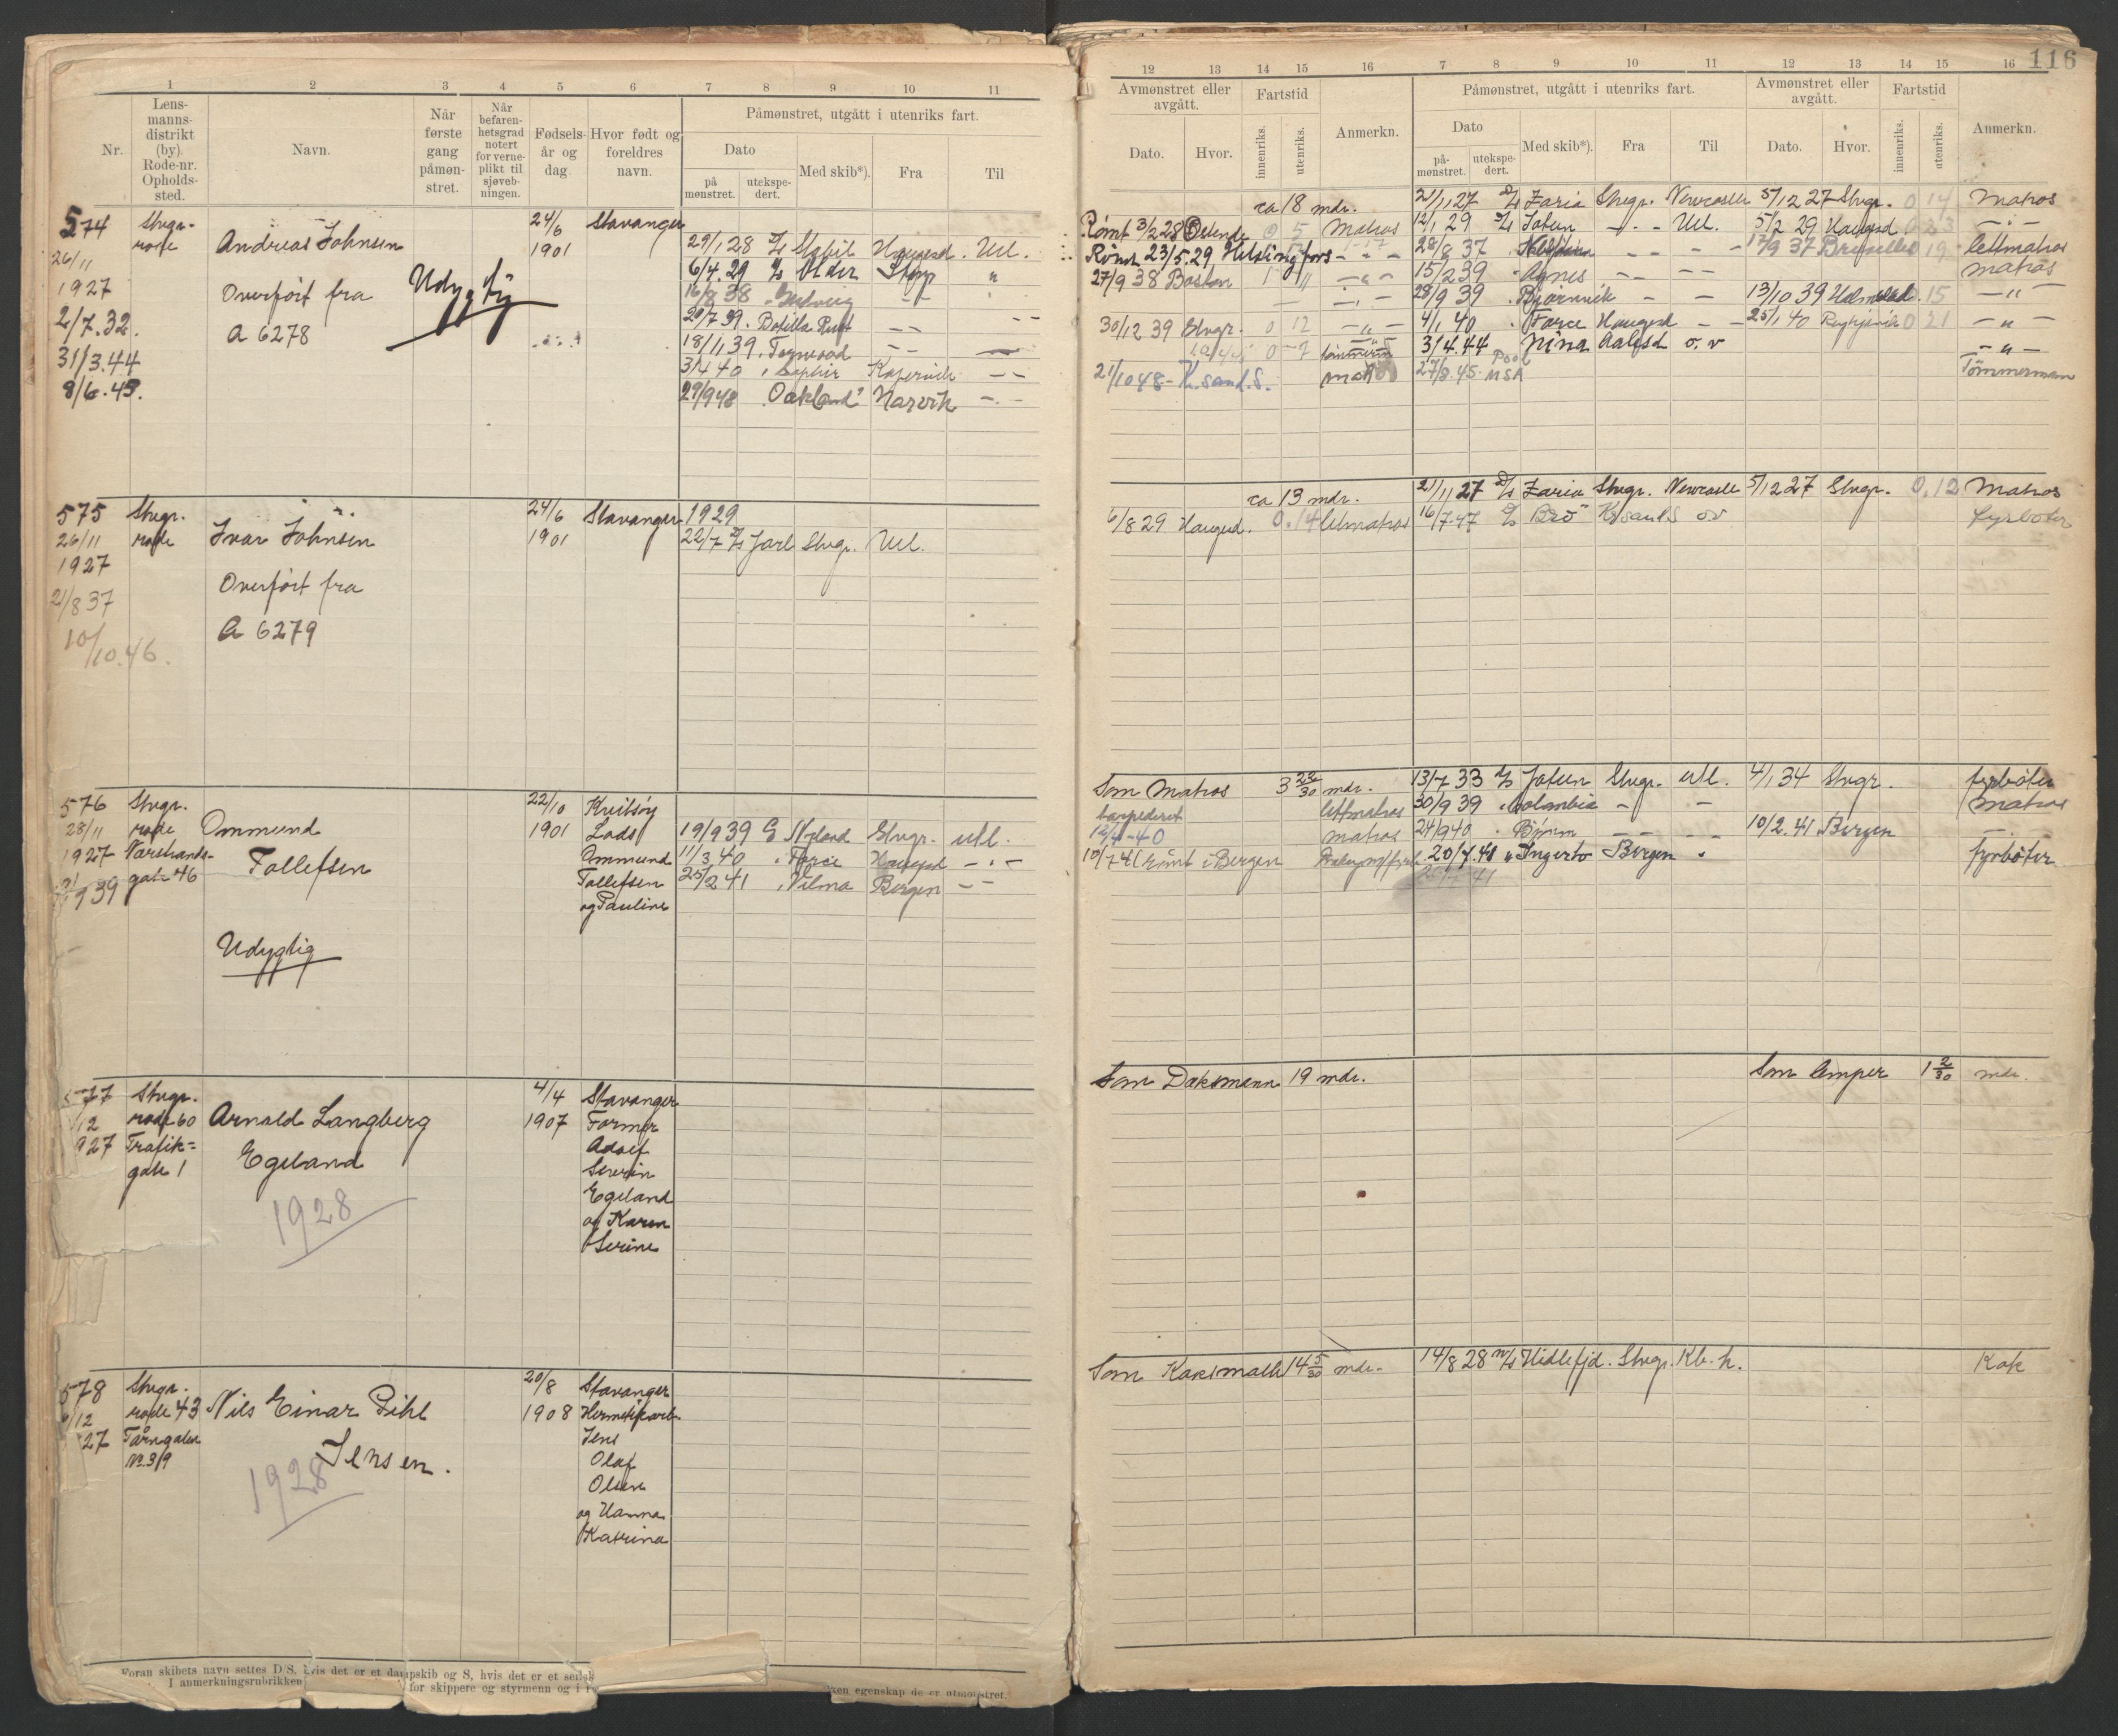 116
1 2 3 4 5 6 7 8 9 10 11
Nr.
Lens-
manns-
distrikt
(by).
Rode-nr.
Opholds-
sted.
Navn.
Når
første
gang
påmøn-
stret.
Når
befaren-
hetsgrad
notert
for verne-
plikt til
sjøveb-
ningen.
Fødsels-
år og
dag
Hvor født og
foreldres
navn.
Påmønstret, utgått i utenriks fart.
Dato
på
mønstret.
utekspe-
dert.
Med skib*).
Fra
Til
12 13 14 15 16 7 8 9 10 11 12 13 14 15 16
Avmønstret eller
avgått.
Dato.
Hvor.
Fartstid
innenriks.
utenriks.
Anmerkn.
Påmønstret, utgått i utenriks fart.
Dato
på-
mønstret.
utekspe-
dert.
Med skib*).
Fra
Til
Avmønstret eller
avgått.
Dato.
Hvor.
Fartstid
innenriks.
utenriks.
Anmerkn.
574
26/11
1927
2/7.32.
31/3.44
8/6.45.
Stvgr.
rode
Andreas Johnsen
Overført fra
A 6278
Udygtig
24/6
1901
Stavanger
29/1 28 D/S Stabil Haugesd. Utl.
6/4.29 D/S Alder Stop "
16/8 38
20/7 39. Botilla Rust — —
18/11 39. Tegwood — —
3/4 40 . Saphir Kopervik — —
29/9 48 "Oakland" Narvik — . —
ca 18 mdr.
Rømt 3/2 28 Ostende 0 5 Matros
Rømt 23/5.29 Helsingfors — — —
27/9 38 Boston 1 11 — " —
30/12 39 Stvgr. 0 12 — " —
tømmerm
21/10 48 - Kr.sand.S. matr
21/11 27 D/S Zaria Stvgr. Newcastle 5/12 27 Stvgr. 0 14 Matros
12/1 29 D/S Jotun — . — Utl. 5/2 29 Haugesd 0 23 — . —
28/8 37 — — — 17/9 37 19 lettmatros
15/2 39 . Agnes — — — — matros
28/9 39 . Bjørnvik — — 13/10 39 15 — " —
4/1 40 . Force Haugesd — — 25/1 40 Reykjavik 0 21 — " —
3/4.44 Nina Aalesd o.v — " —
27/8.45. Pool USA Tømmermann
575
26/11
1927
21/8 37
10/10.46.
Stvgr.
rode
Ivar Johnsen
Overført fra
A 6279
24/6
1901
Stavanger
1929
22/7 D/S Jarl Stvgr. Utl.
ca 13 mdr.
6/8 29 Haugesd. 0.14 lettmatros
21/11 27 D/S Zaria Stvgr. Newcastle 5/12 27 Stvgr. 0.12 Matros
16/7.47 D/S "Bro" Kr.sand.S ov fyrbøter
576
28/11
1927
9 39
Stvgr.
rode
Varstrands-
gate 46
Ommund
Tollefsen
Udygtig
22/10
1901
Kvitsøy
Lods
Ommund
Tollefsen
og Pauline
19/9 39 Stvgr. utl.
11/3 40 . Force Haugesd — . —
25/2 41 . Vilma Bergen — —
Som Matros 3 22/30 mdr.
torpedert lettmatros
12/4-40 matros
10/7 41 rømt i Bergen
13/7 33 D/S Jotun Stvgr. utl. 4/1 34 Stvgr. fyrbøter
30/9 39 . Colombia — — Matros
24/9 40 . Bjørn — — — — 10/2.41 Bergen — . —
20/7.41 " Ingerto Bergen " fyrbøter
577
/12
927
Stvgr.
rode 60
Trafik=
gate 1
Arnold Langberg
Egeland
1928
4/4
1907
Stavanger
Former
Adolf
Severin
Egeland
og Karen
Serine
Som Dæksmann 19 mdr.
Som lemper 1 2/30 mdr.
578
/12
27
Stvgr.
rode 43
Tårngaten
No. 39
Nils Einar Pihl
Jensen.
1928
20/8
1908
Stavanger
Hermetikarb.
Jens
Olaf
Olsen
og Hanna
Katrina
Som Koksmath 14 5/30 mdr.
14/8 28 M/S Hidlefjd. Stvgr. Kb.h. Kok
Foran skibets navn settes D/S, hvis det er et dampskib og S, hvis det er et seilsk
I anmerkningsrubrikken for skippere og styrmenn og i
ken egenskap de er utmønstret.